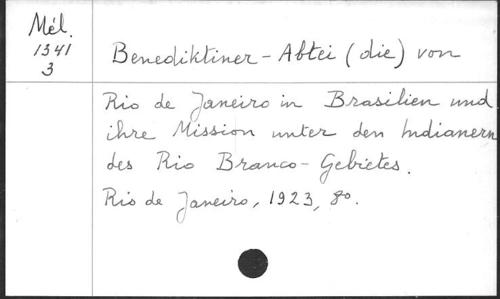 Mél.
1341
3
Benediktiner-Abtei (die) von
Rio de Janeiro in Brasilien und
ihre Mission unter den Indianern
des Rio Branco-Gebietes.
Rio de Janeiro, 1923, 8o.